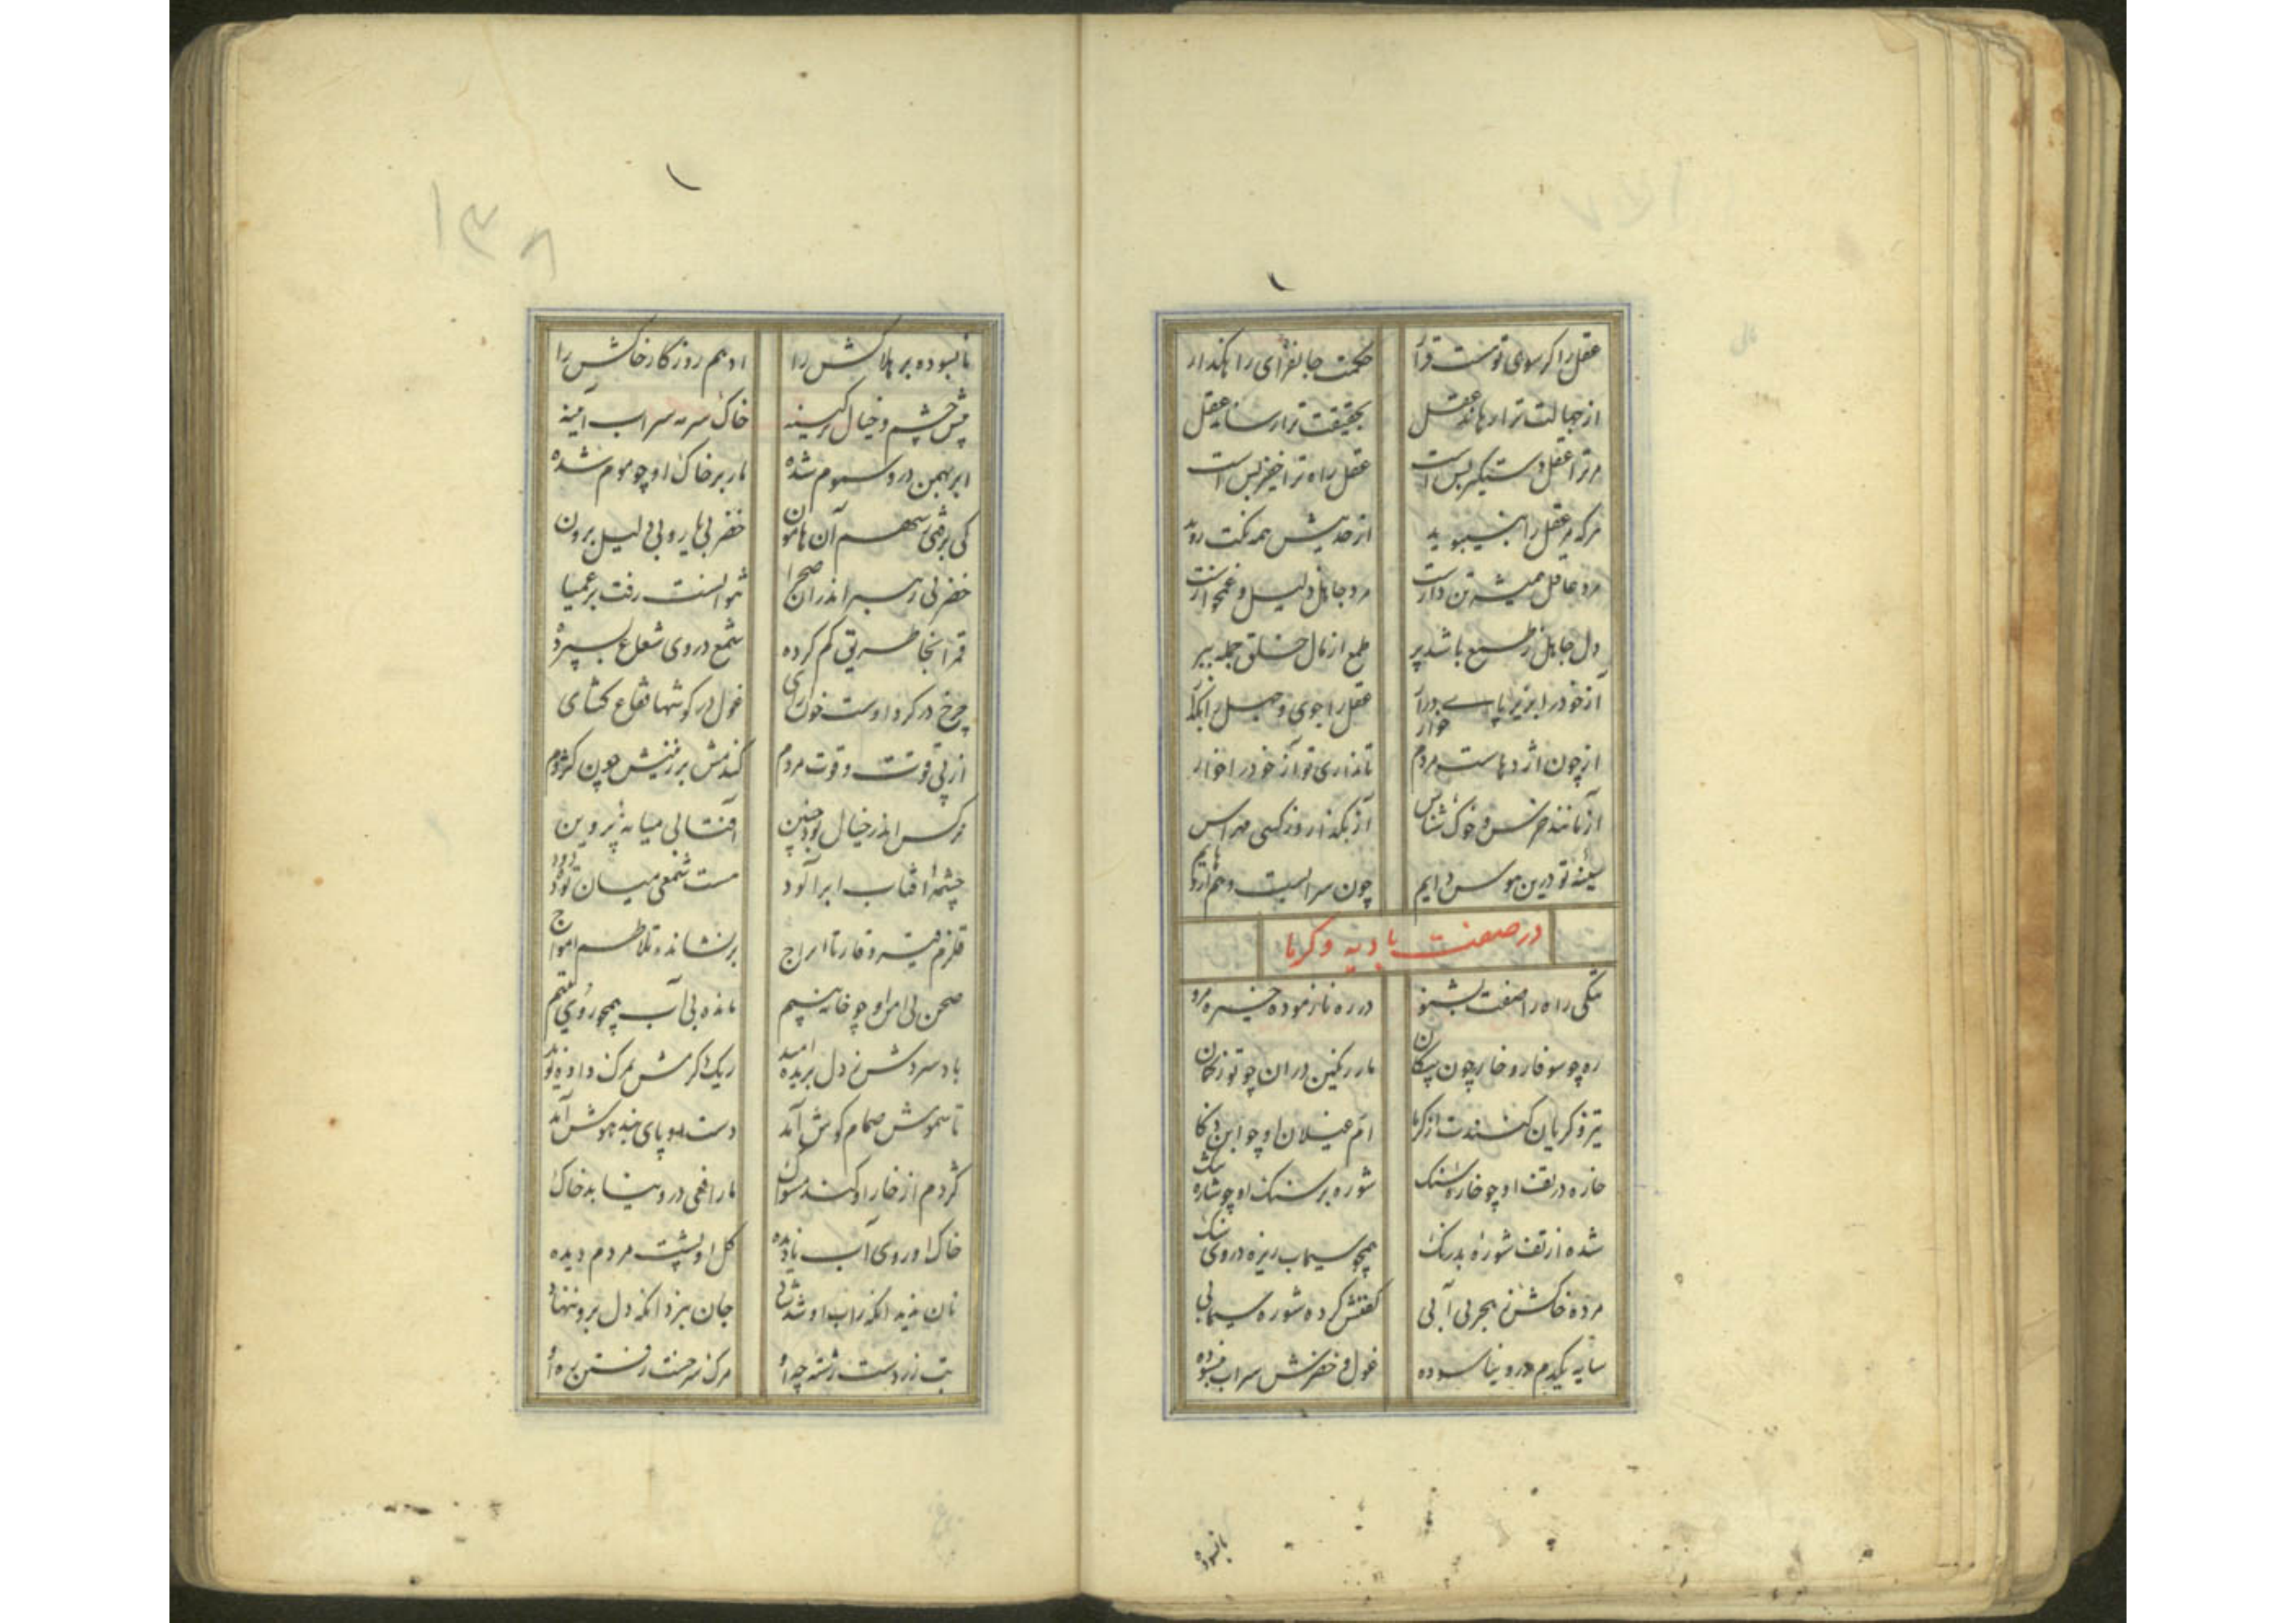 عقل را کر سوی تو هست قرا
حکمت جانفزای را مکذار
از جهالت ترا رهاند عقل
بحقیقت ترا رساند عقل
مر ترا عقل دستکیر بس است
عقل راه ترا خفیر بس است
هرکه مر عقل را
از حدیثش همه نکت روید
مرد عاقل همیشه تن دارست
مرد جاهل ذلیل و غمخوارست
دل جاهل ز طمع باشد پر
طمع از مال خلق جمله ببر
آز خود را بزیر پای درآ
عقل را جوی و جهل را بکذا
از چون اژدهاست مردم خوار
تا نداری تو آز خود را خوار
آز بکذار و زکسی مهراس
سینه تو درین هوس دایم
چون سرابیست وهم
در صفت بادیه و کرما
تنکی راه را صفت بشنو
در ره نازموده خیره مرو
ره چو سوفار و خار چون پیکان
مار رنکین دران چو توز کمان
ام غیلان او چو
خاره در تف او چو خاره شنک
شوره بر سنک او چو
شده از تف شوره بدرنک
همچو سیماب ریزه در وی سنک
مرده خاکش ز هجر بی آبی
کفنش کرده شوره سیمابی
سایه یکدم درو نیاسوده
غول و خضرش سراب
نابسوده
۱۳۸
نابسوده بر هلاکش را
ادهم روزکار خاکش را
پیش چشم و خیال
خاک سر به سراب آمینه
ابر بهمن درو سموم شده
مار بر خاک او چو موم شده
کی برفتی سهم آن هامون
خضر بی یار و بی دلیل برون
خضر بی رهبر اندران صحرا
نتوانست رفت بر عمیا
قمر آنجا طریق کم کرده
شمع در وی شعاع بسپرده
چرخ در کرد اوست
غول در کوشها فقاع کشای
از پی قوتت و قوت مردم
کندمش بر زمینش چون کژدم
هرکس اندر خیال بود چنین
افتابی میانه پروین
چشمه آفتاب ابر آلود
هست شمعی میان توده دود
قلزم تا
بر نشانده تلاطم امواج
صحن بی او چو خانه
مانده بی آب همچو روی یتیم
باد سردش ز دل بریده امید
ریک کرمش بمرک داده نوید
تا سموش صمام کوش آمد
دست او پای بند هوش آمد
کژدم از خار او کند مسواک
مار افعی درو نیابد خاک
خاک او روی آب نادیده
کل او پشت مردم دیده
نان ندید آنکه راه او شد
جان ببرد آنکه دل برو ننهاد
تب ز
مرک سر جست رفتن ره او